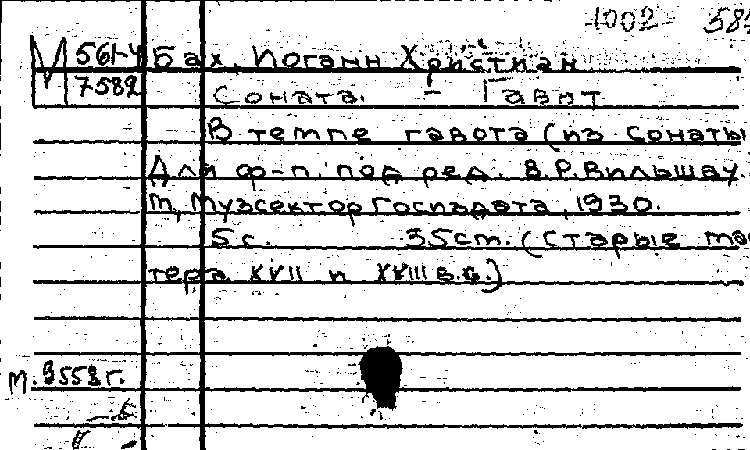 1002 585
М 561-4 Бах, Иоганн Христиан
7582 Соната. - Гавот
В темпе гавота (из сонаты
Для ф-п. под ред. В.Р.Вильшау.
М, Музсектор Госиздата, 1930.
5 с. 35 см. (Старые мас
тера XVII и XVIII в.в.)
М. 9558 г.